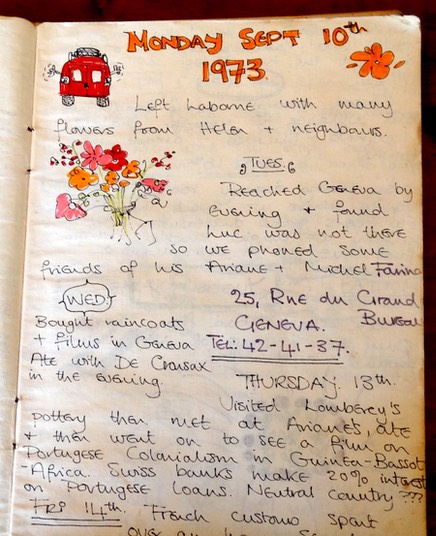 MONDAY SEPT 10th
1973.
Left Laborne with many
flowers from Helen + neighbours.
TUES.
Reached Geneva by
evening + found
Luc was not there
so we phoned some
friends of his Ariane + Michel Farina
25, Rue du Grand
Bureau
GENEVA.
TEL: 42-41-37.
WED.
Bought raincoats
+ films in Geneva
Ate with De Crousax
in the evening.
THURSDAY. 13th.
Visited Lombercy's
pottery then met at Ariane's, ate
+ then went on to see a film on
Portugese Colonialism in Guinea-Bassot
-Africa. Swiss banks make 20% interest
on Portugese loans. Neutral country ???
FRI 14th. French customs spent
over an hour